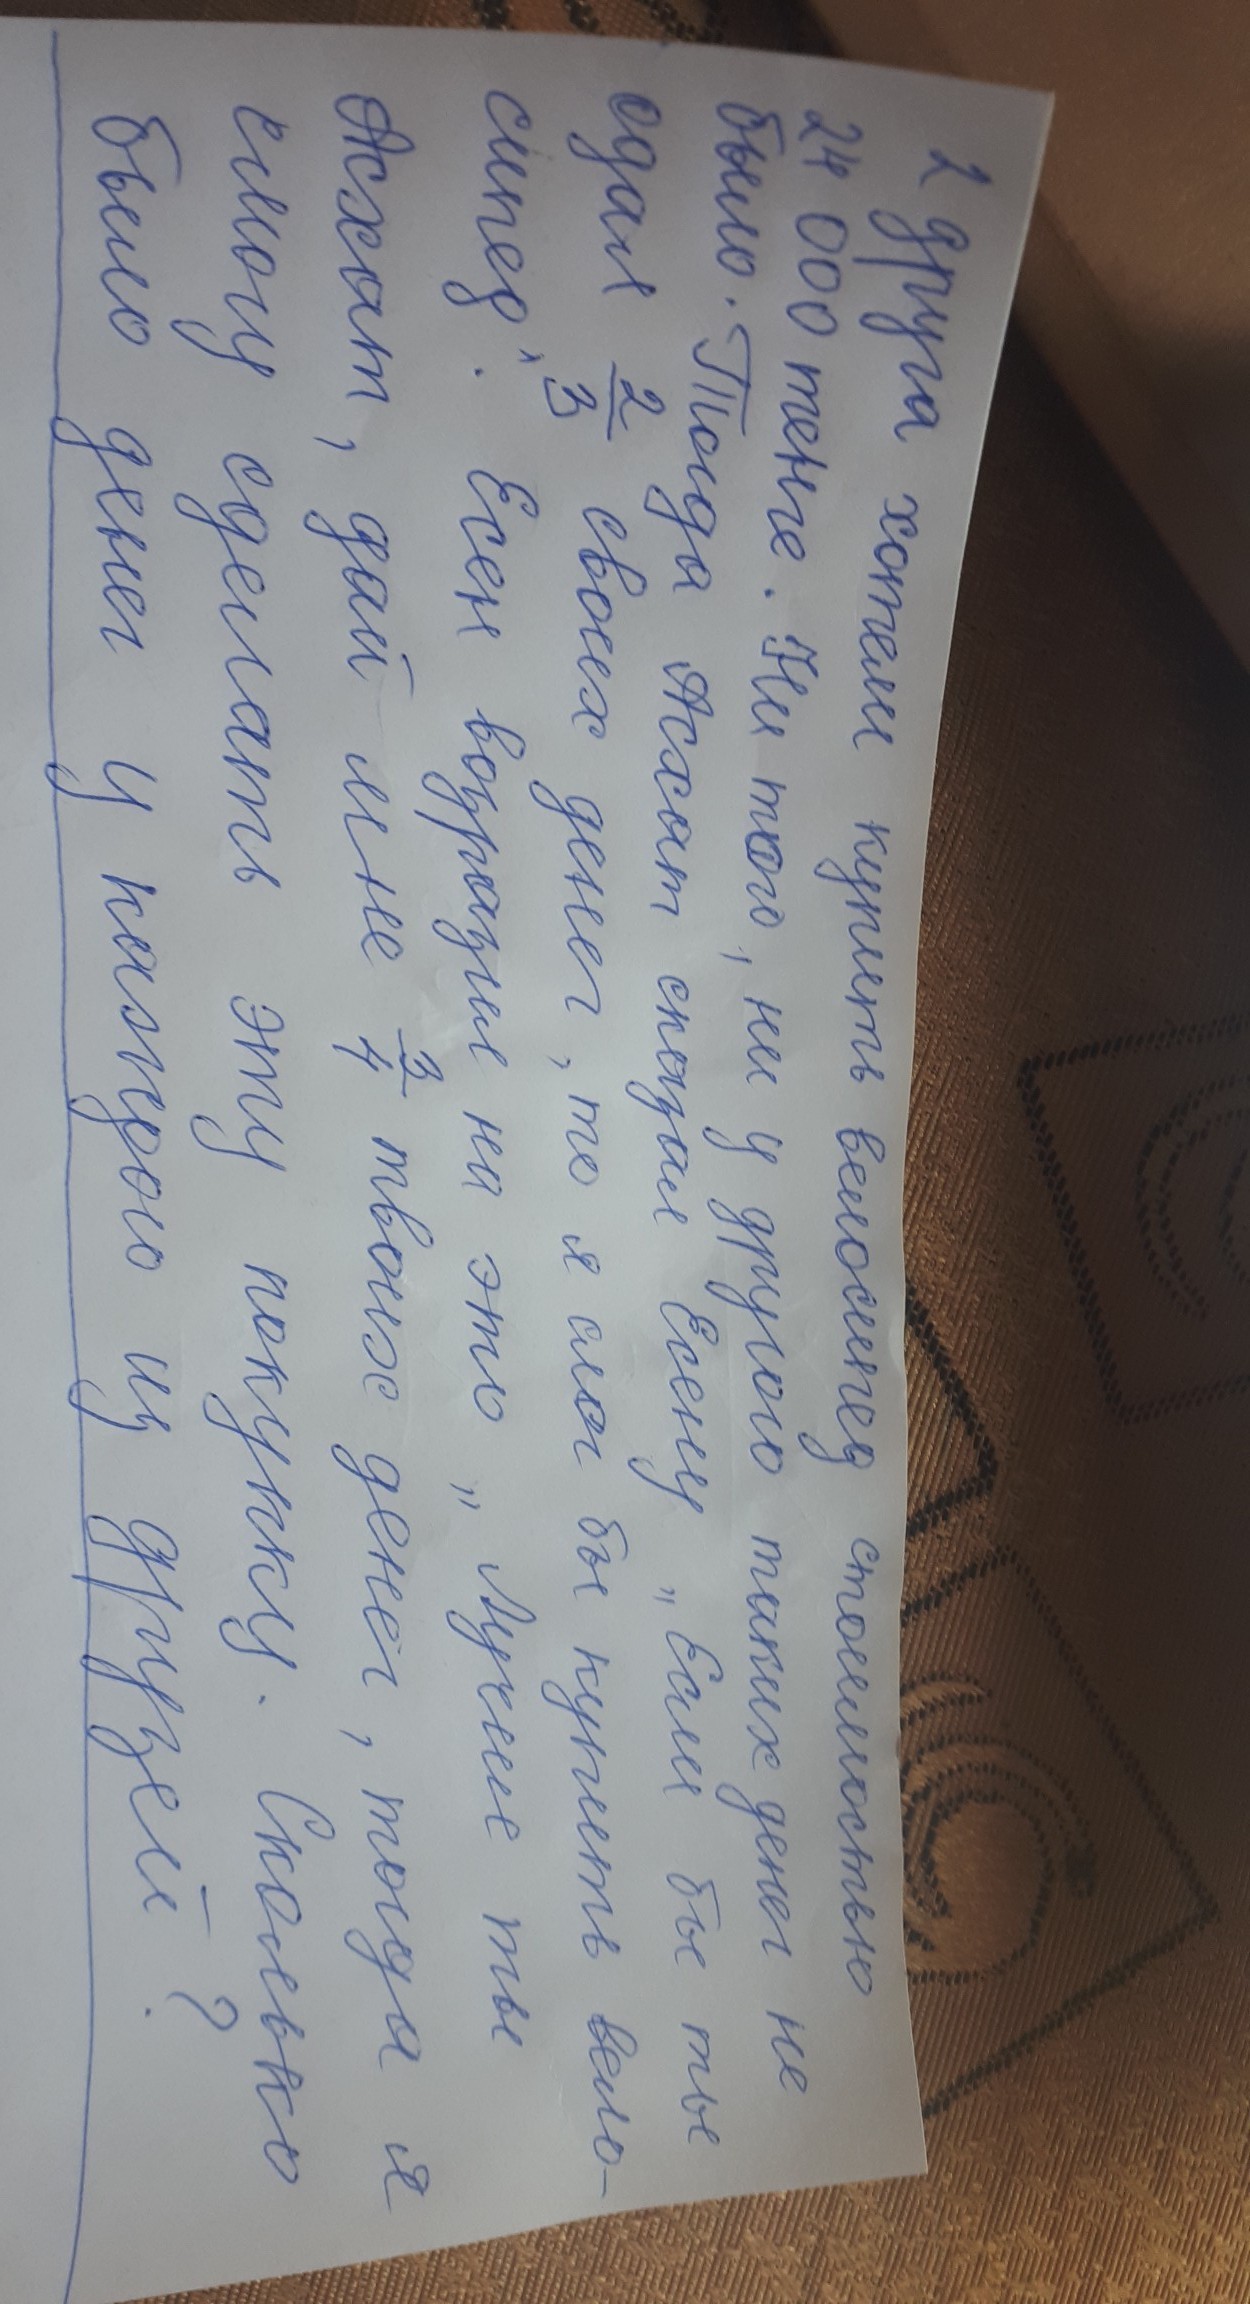 2 друга хотели купить велосипед стоимостью
24 000 тенге. Ни того, ни у другого таких денег не
было. "Тогда Асхат сказал Есену „Если бы ты
одал 2/3 своех денег, то я смог бы купить вело-
сипед". Есен возразил на это „ Лучше ты
Асхат, дай мне 3/4 твоих денег, тогда я
смогу сделать эту покупку. Сколько
было денег у каждого из друзей?